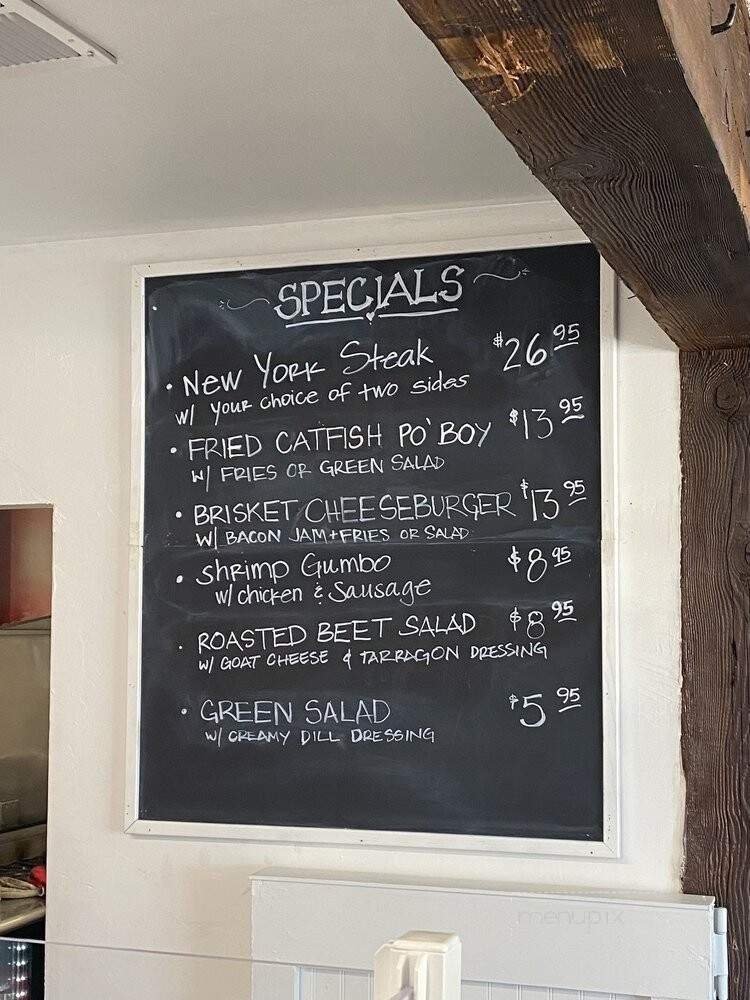 SPECIALS
• New York Steak $26 95
w/ your choice of two sides
• FRIED CATFISH PO'BOY $13 95
w/ FRIES OR GREEN SALAD
• BRISKET CHEESEBURGER $13 95
w/ BACON JAM + FRIES OR SALAD
• Shrimp Gumbo $8 95
w/ chicken & Sausage
• ROASTED BEET SALAD $8 95
w/ GOAT CHEESE & TARRAGON DRESSING
• GREEN SALAD $5 95
w/ CREAMY DILL DRESSING
menupix